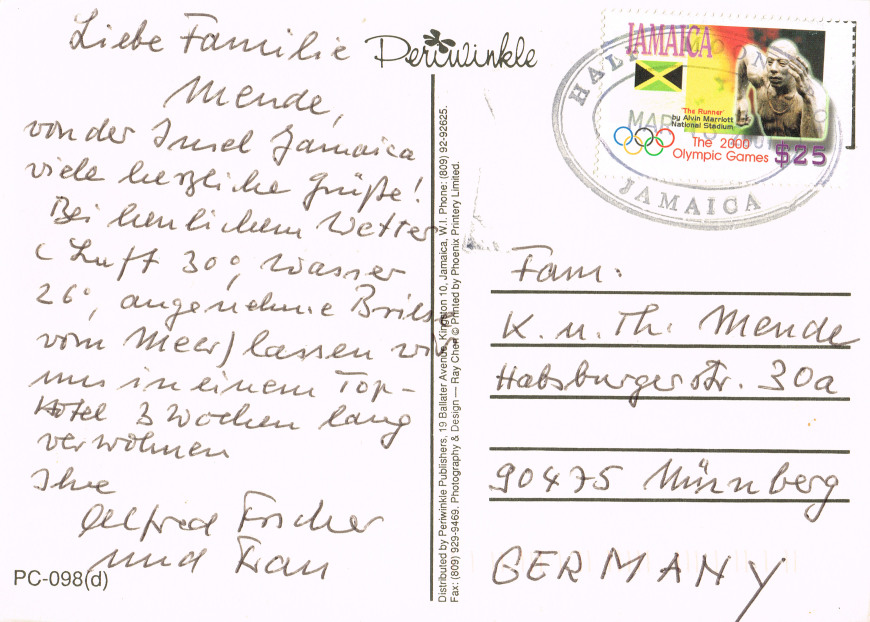 Liebe Familie
Mende,
von der Insel Jamaica
viele herzliche Grüße!
Bei herrlichem Wetter
(Luft 30°, Wasser
26°, angenehme Brise
vom Meer) lassen wir
uns in einem Top-
Hotel 3 Wochen lang
verwöhnen
Ihre
Alfred Fischer
und Frau
PC-098(d)
Periwinkle
Distributed by Periwinkle Publishers, 19 Ballater Avenue, Kingston 10, Jamaica, W.I. Phone: (809) 92-92625.
Fax: (809) 929-9469. Photography & Design — Ray Chen © Printed by Phoenix Printery Limited.
JAMAICA
'The Runner'
by Alvin Marriott
National Stadium
The 2000
Olympic Games
$25
HALF MOON
MAR 2001
JAMAICA
Fam.
K. u. Th. Mende
Habsburgerstr. 30a
90475 Nürnberg
GERMANY